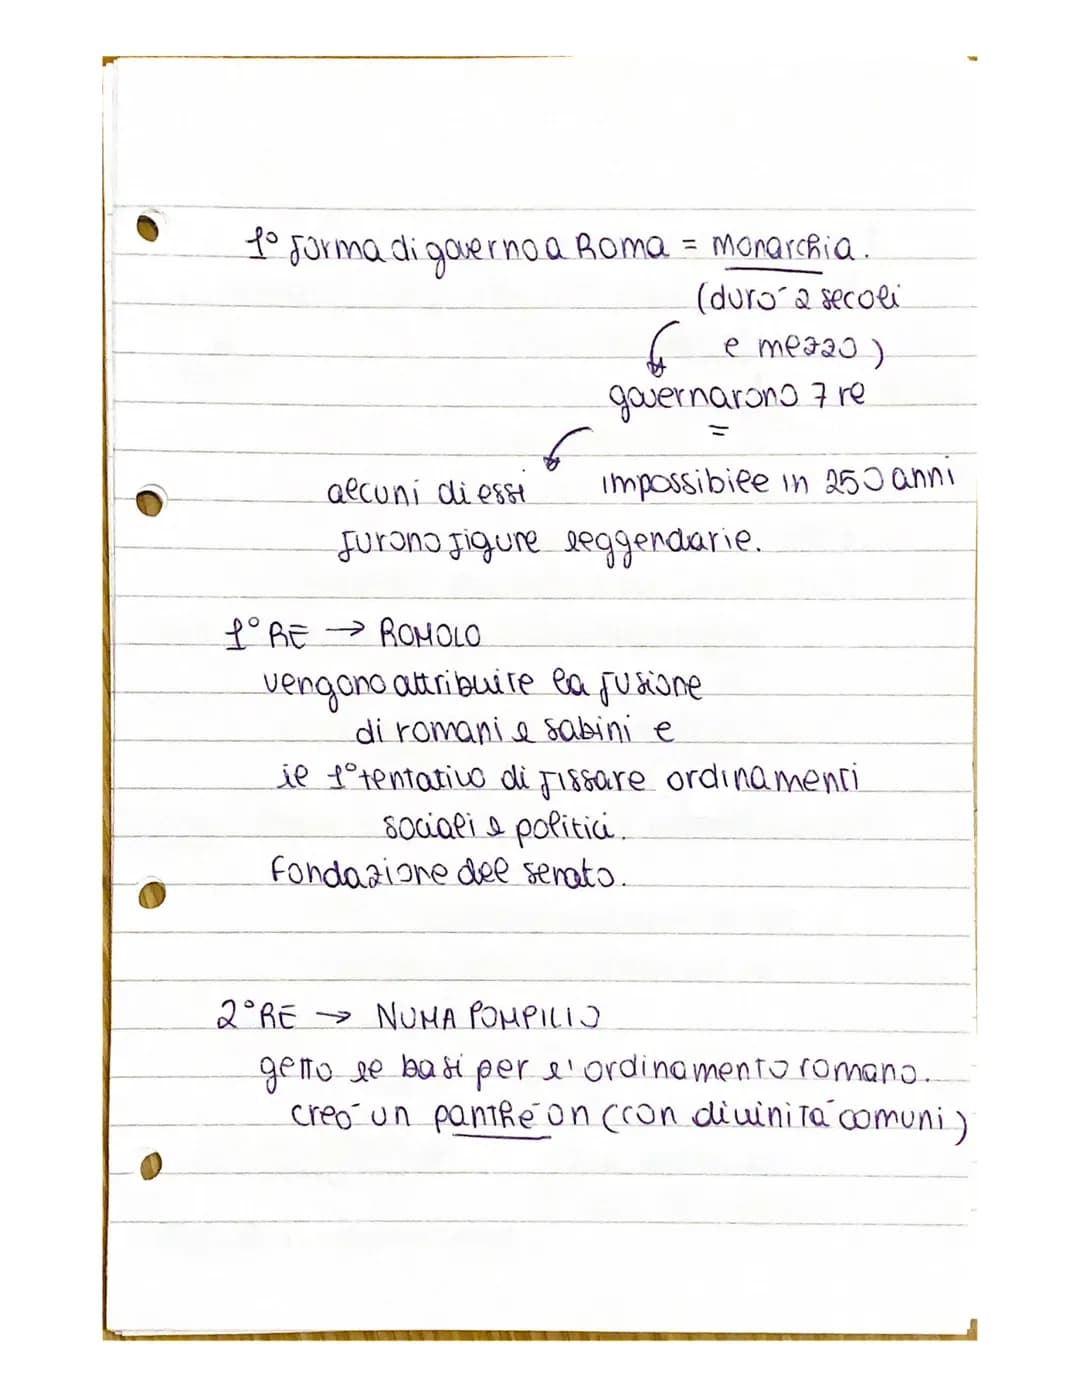 1° forma di governo a Roma = Monarchia.
(durò 2 secoli
e mezzo)
governarono 7 re
=
alcuni di essi impossibile in 250 anni
furono figure leggendarie.
1° RE → ROMOLO
vengono attribuite la fusione
di romani e sabini e
il 1° tentativo di fissare ordinamenti
sociali e politici.
Fondazione del senato.
2° RE → NUMA POMPILIO
gettò le basi per l'ordinamento romano.
creò un panthéon (con divinità comuni)